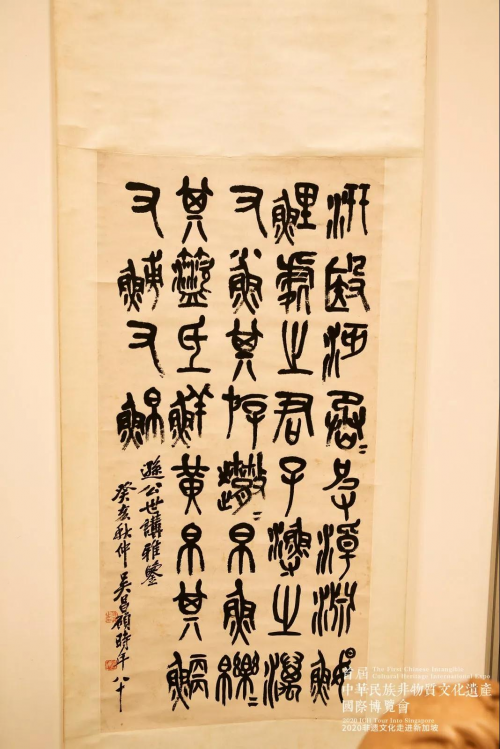 汧殹沔〻丞皮淖淵鰋
鯉處之君子漁之澫
又小魚其斿〻帛魚皪〻
其氐鮮黃帛其鯿
又鯆又鮊
遜公世講雅鑒
癸亥秋仲吳昌碩時年八十
首屆 The First Chinese Intangible Cultural Heritage International Expo
中華民族非物質文化遺產
國際博覽會
2020 ICH Tour Into Singapore
2020非遺文化走進新加坡